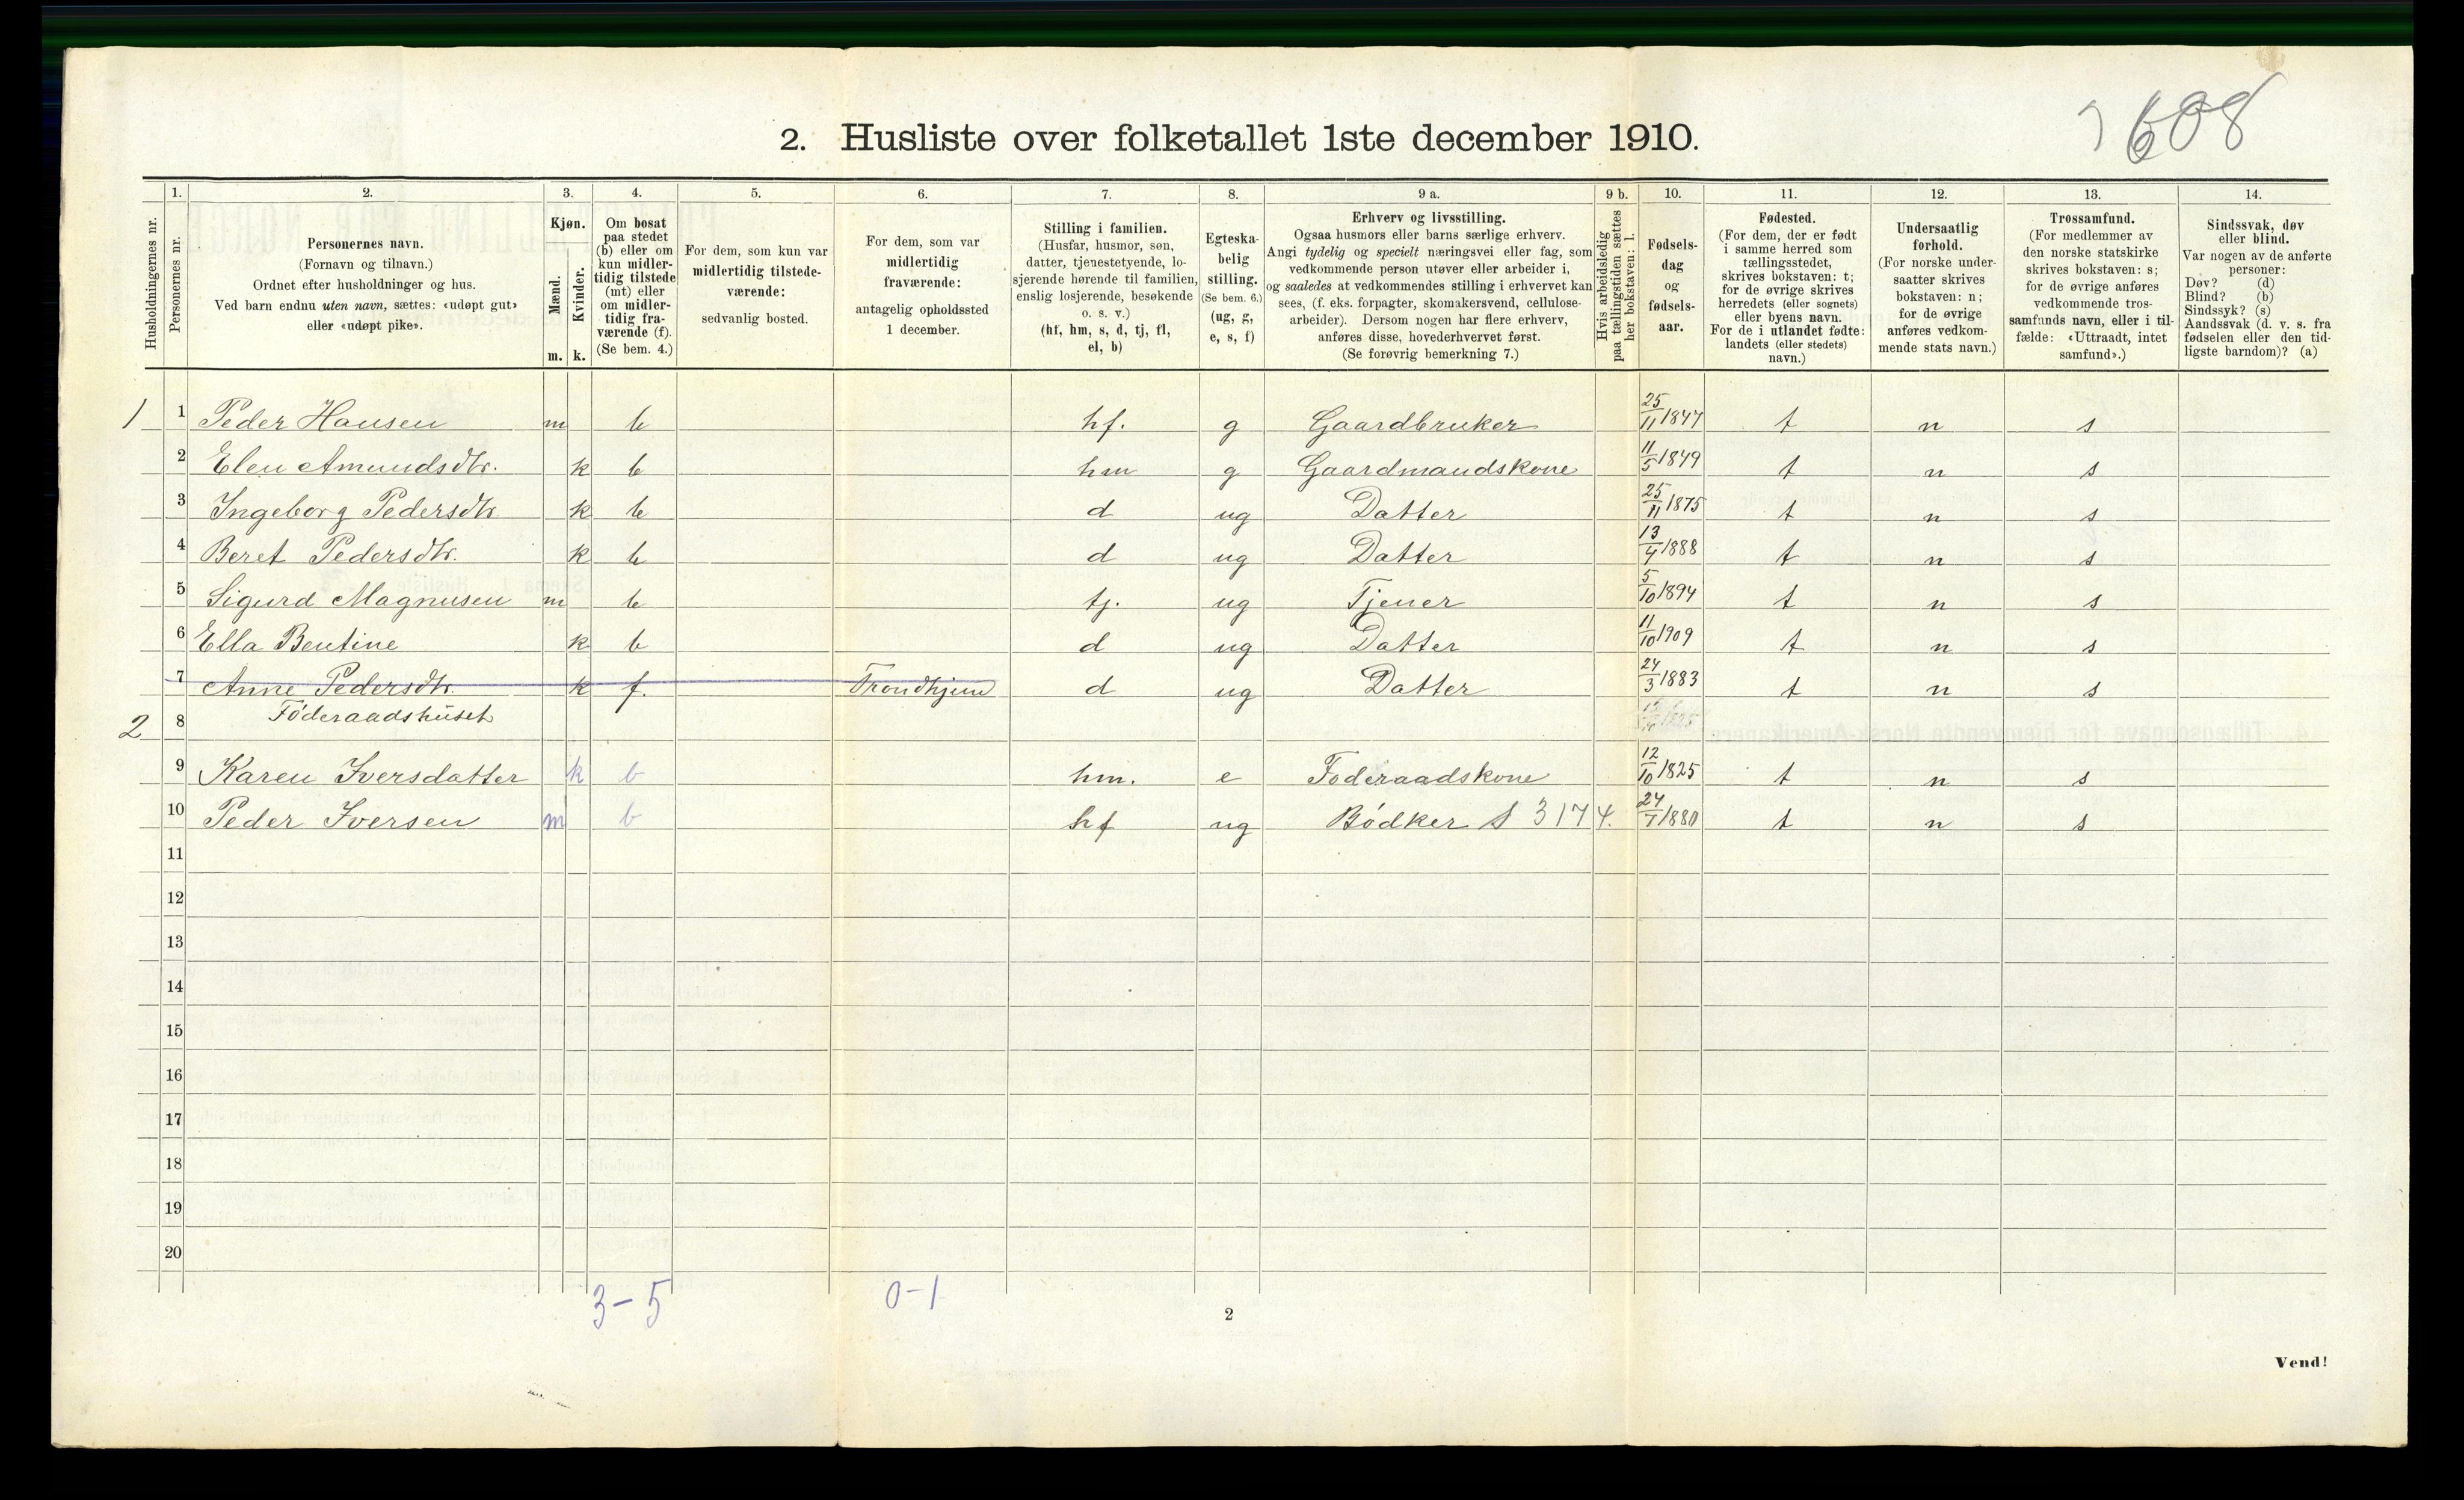 608
2. Husliste over folketallet 1ste december 1910.
Husholdningernes nr.
1. Personernes nr.
2. Personernes navn. (Fornavn og tilnavn.) Ordnet efter husholdninger og hus. Ved barn endnu uten navn, sættes: «udøpt gut» eller «udøpt pike».
3. Kjøn. Mænd. m. Kvinder. k.
4. Om bosat paa stedet (b) eller om kun midlertidig tilstede (mt) eller om midlertidig fraværende (f). (Se bem. 4.)
5. For dem, som kun var midlertidig tilstedeværende: sedvanlig bosted.
6. For dem, som var midlertidig fraværende: antagelig opholdssted 1 december.
7. Stilling i familien. (Husfar, husmor, søn, datter, tjenestetyende, losjerende hørende til familien, enslig losjerende, besøkende o. s. v.) (hf, hm, s, d, tj, fl, el, b)
8. Egteskabelig stilling. (Se bem. 6.) (ug, g, e, s, f)
9 a. Erhverv og livsstilling. Ogsaa husmors eller barns særlige erhverv. Angi tydelig og specielt næringsvei eller fag, som vedkommende person utøver eller arbeider i, og saaledes at vedkommendes stilling i erhvervet kan sees, (f. eks. forpagter, skomakersvend, cellulosearbeider). Dersom nogen har flere erhverv, anføres disse, hovederhvervet først. (Se forøvrig bemerkning 7.)
9 b. Hvis arbeidsledig paa tællingstiden sættes her bokstaven: l.
10. Fødselsdag og fødselsaar.
11. Fødested. (For dem, der er født i samme herred som tællingsstedet, skrives bokstaven: t; for de øvrige skrives herredets (eller sognets) eller byens navn. For de i utlandet fødte: landets (eller stedets) navn.)
12. Undersaatlig forhold. (For norske undersaatter skrives bokstaven: n; for de øvrige anføres vedkommende stats navn.)
13. Trossamfund. (For medlemmer av den norske statskirke skrives bokstaven: s; for de øvrige anføres vedkommende trossamfunds navn, eller i tilfælde: «Uttraadt, intet samfund».)
14. Sindssvak, døv eller blind. Var nogen av de anførte personer: Døv? (d) Blind? (b) Sindssyk? (s) Aandssvak (d. v. s. fra fødselen eller den tidligste barndom)? (a)
1 1 Peder Hansen m b hf. g Gaardbruker 25/11 1847 t n s
2 Elen Amundsdtr. k b hm g Gaardmandskone 11/5 1849 t n s
3 Ingeborg Pedersdtr k b d ug Datter 25/11 1875 t n s
4 Beret Pedersdtr. k b d ug Datter 13/4 1888 t n s
5 Sigurd Magnusen m b tj. ug Tjener 5/10 1894 t n s
6 Ella Bentine k b d ug Datter 11/10 1909 t n s
7 Anne Pedersdtr. k f. Trondhjem d ug Datter 24/3 1883 t n s
2 8 Föderaadshuset
9 Karen Iversdatter k b hm. e Foderaadskone 12/10 1825 t n s
10 Peder Iversen m b hf ug Bödker S 3174. 24/7 1880 t n s
11
12
13
14
15
16
17
18
19
20
3-5 0-1
2
Vend!